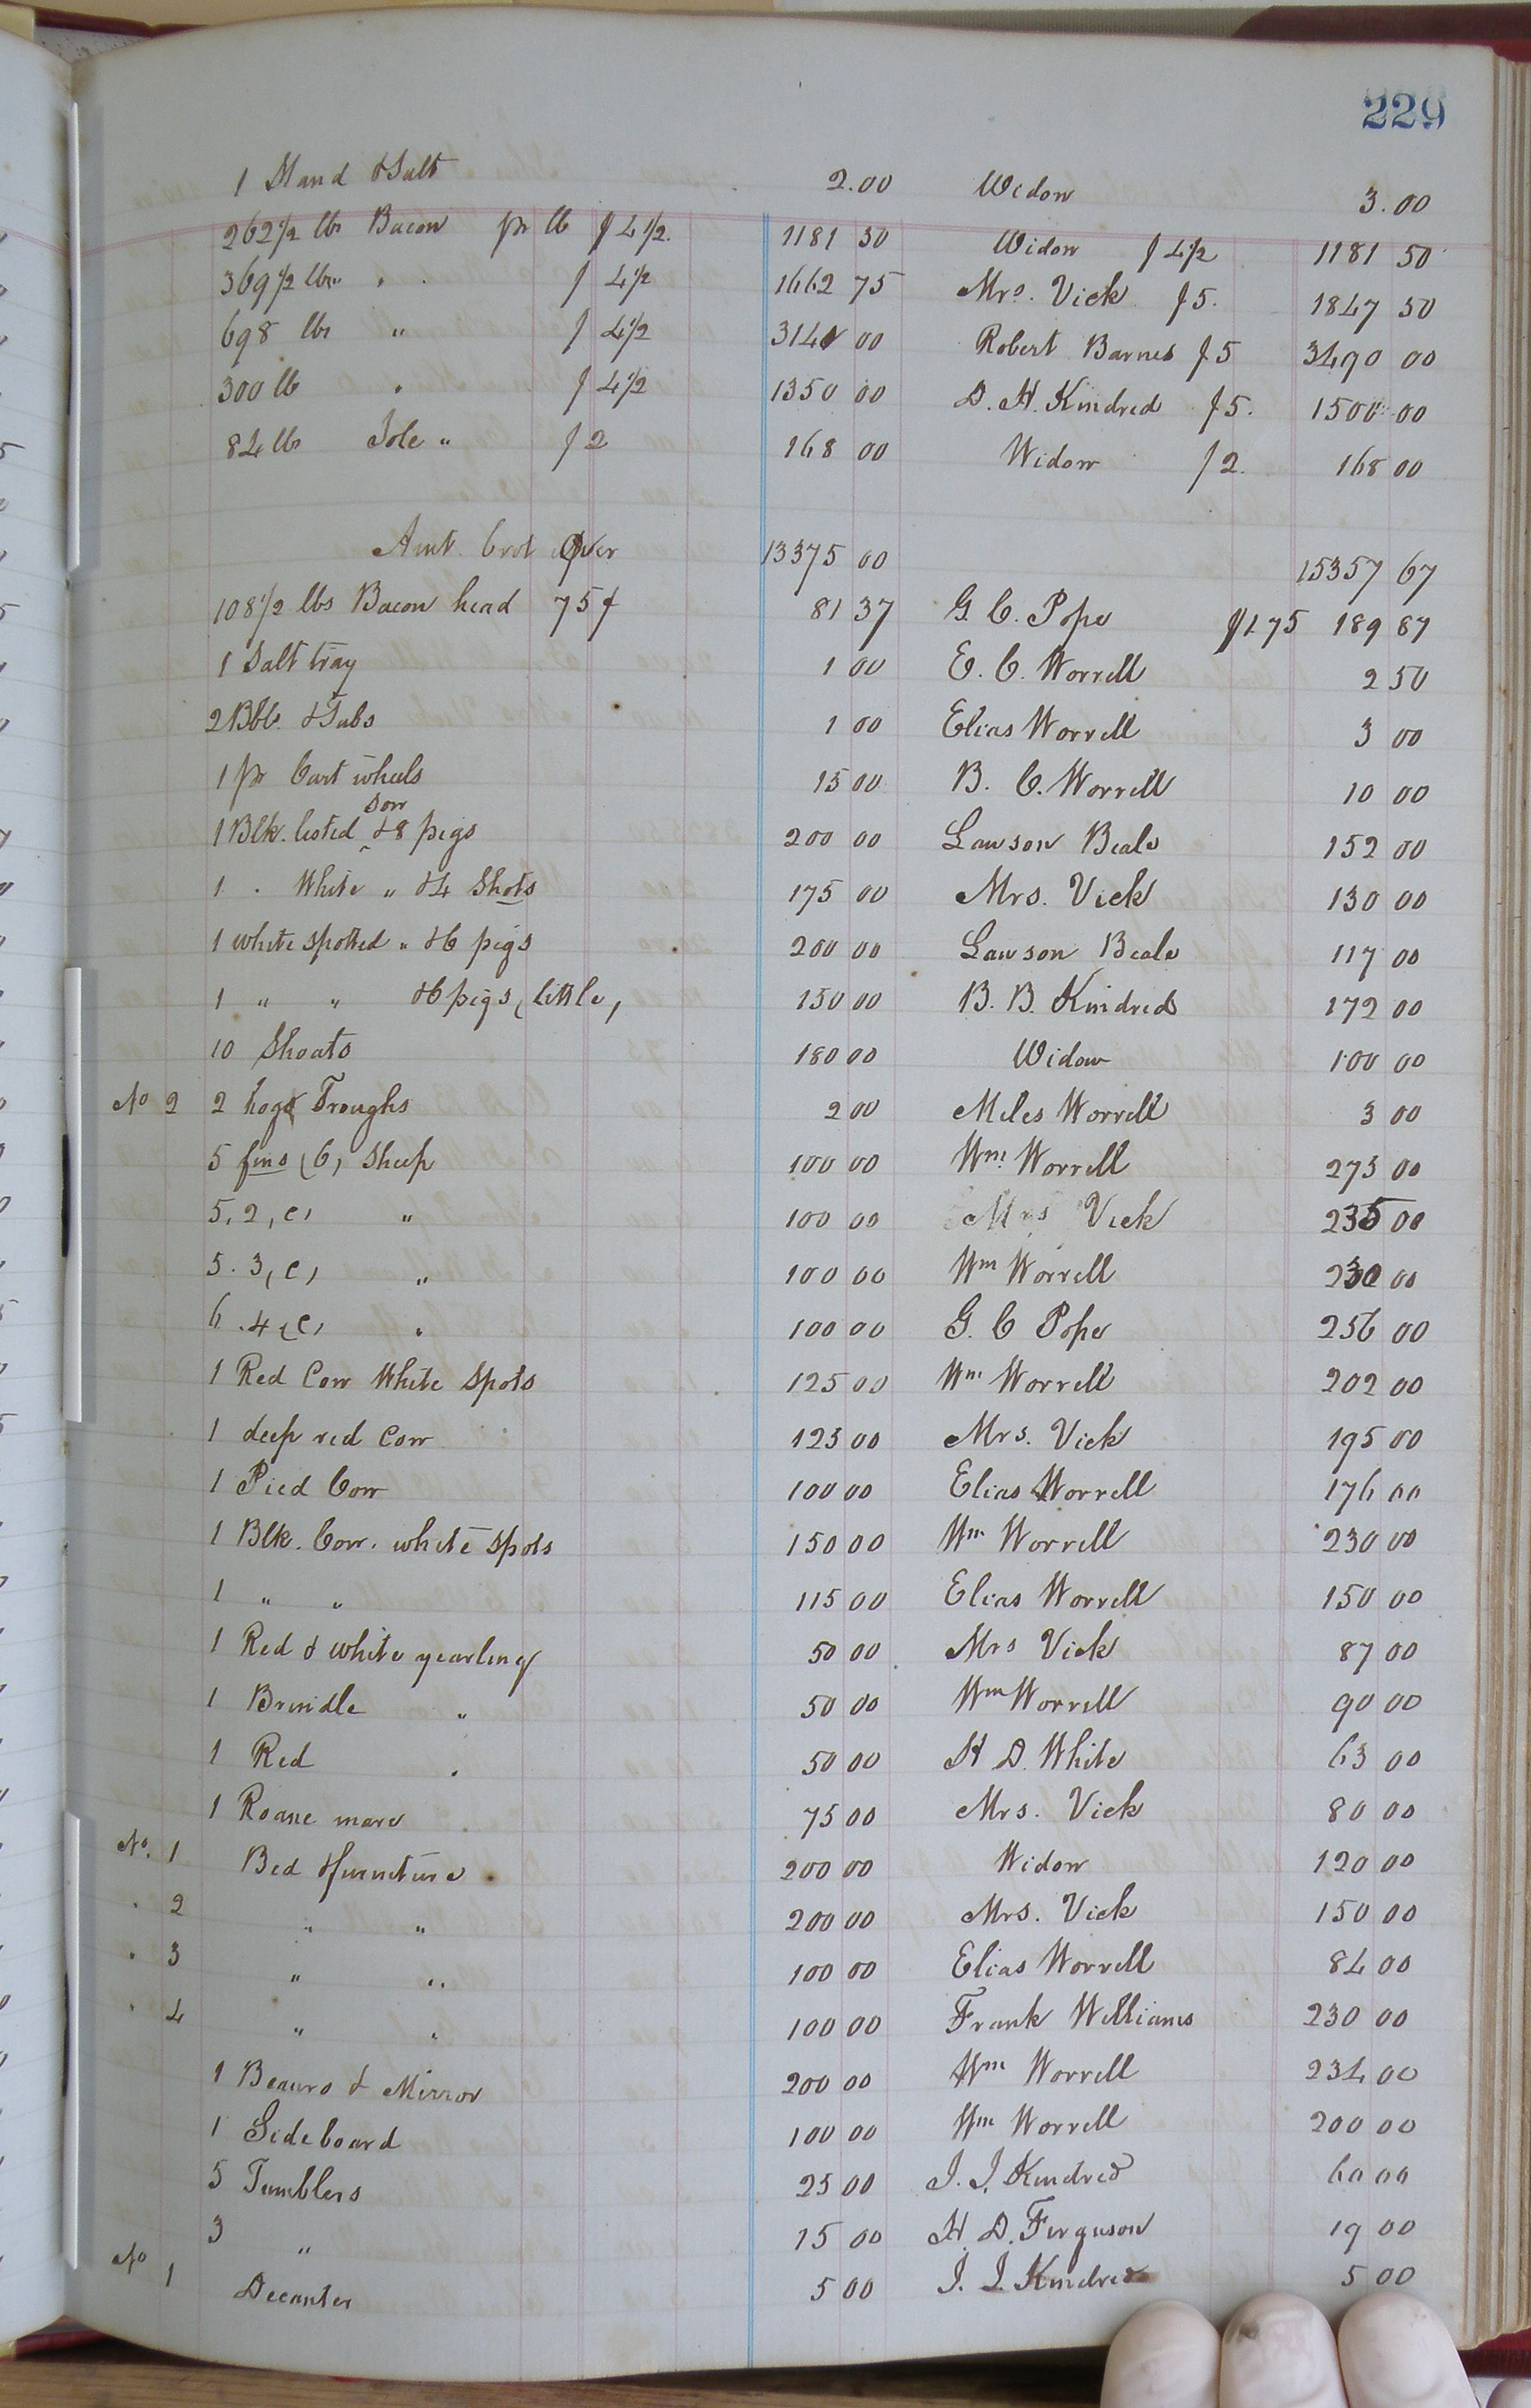 229
1 Stand & Salt 2.00 Widow 3.00
262 1/2 lbs Bacon pr lb $ 4 1/2. 1181 30 Widow $ 4 1/2 1181 50
369 1/2 lbs " . $ 4 1/2 1662 75 Mrs. Vick $5. 1847 50
698 lbs " $ 4 1/2 3141 00 Robert Barnes $5 3490 00
300 lb " $ 4 1/2 1350 00 D. H. Kindred $5. 1500 00
84 lbs Jole " $2 168 00 Widow $2. 168 00
Amt. brot Over 13375 00 15357 67
108 1/2 lbs Bacon head 75¢ 81 37 G. C. Pope $1 75 189 87
1 Salt tray 1 00 E. C. Worrell 2 50
2 Bbls. & Tubs 1 00 Elias Worrell 3 00
1 pr Cart wheels 15 00 B. C. Worrell 10 00
1 Blk. listed Sow & 8 pigs 200 00 Lawson Beale 152 00
1 . White " & 4 Shots 175 00 Mrs. Vick 130 00
1 white spotted " & 6 pigs 200 00 Lawson Beale 117 00
1 " " & 6 pigs (little) 150 00 B. B. Kindred 172 00
10 Shoats 180 00 Widow 100 00
No 2 2 hog Troughs 2 00 Miles Worrell 3 00
5 fins (C) Sheep 100 00 Wm. Worrell 275 00
5. 2, C) " 100 00 Mrs Vick 235 00
5. 3, C) " 100 00 Wm Worrell 230 00
6. 4 (C) " 100 00 G. C Pope 256 00
1 Red Cow White Spots 125 00 Wm Worrell 202 00
1 deep red Cow 125 00 Mrs. Vick 195 00
1 Pied Cow 100 00 Elias Worrell 176 00
1 Blk. Cow. white spots 150 00 Wm Worrell 230 00
1 " " 115 00 Elias Worrell 150 00
1 Red & white yearling 50 00 Mrs Vick 87 00
1 Brindle " 50 00 Wm Worrell 90 00
1 Red " 50 00 H D. White 63 00
1 Roane mare 75 00 Mrs. Vick 80 00
No. 1 Bed & furniture 200 00 Widow 120 00
" 2 " " 200 00 Mrs. Vick 150 00
" 3 " " 100 00 Elias Worrell 84 00
" 4 " " 100 00 Frank Williams 230 00
1 Beauro & Mirror 200 00 Wm Worrell 234 00
1 Sideboard 100 00 Wm Worrell 200 00
5 Tumblers 25 00 J. J. Kindred 60 00
3 " 15 00 H. D. Ferguson 19 00
No 1 Decanter 5 00 J. J. Kindred 5 00